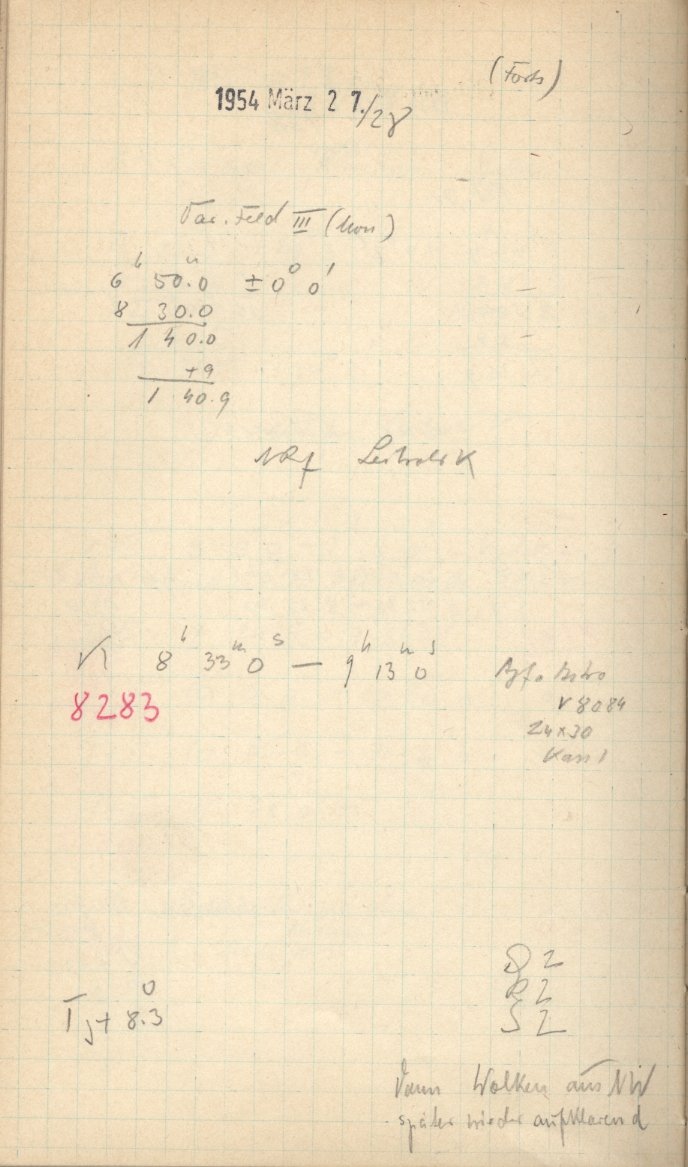 (Forts)
1954 März 2 7./28
Var. Feld III (Mon)
6h 50.0m ±0° 0'
8 30.0
1 40.0
+9
1 40.9
8h 33m 0s — 9h 13m 0s
8283
Agfa Astro
V 8084
24x30
Kass 1
T j + 8.3°
D 2
R 2
S 2
Dann Wolken aus NW
später wieder aufklarend